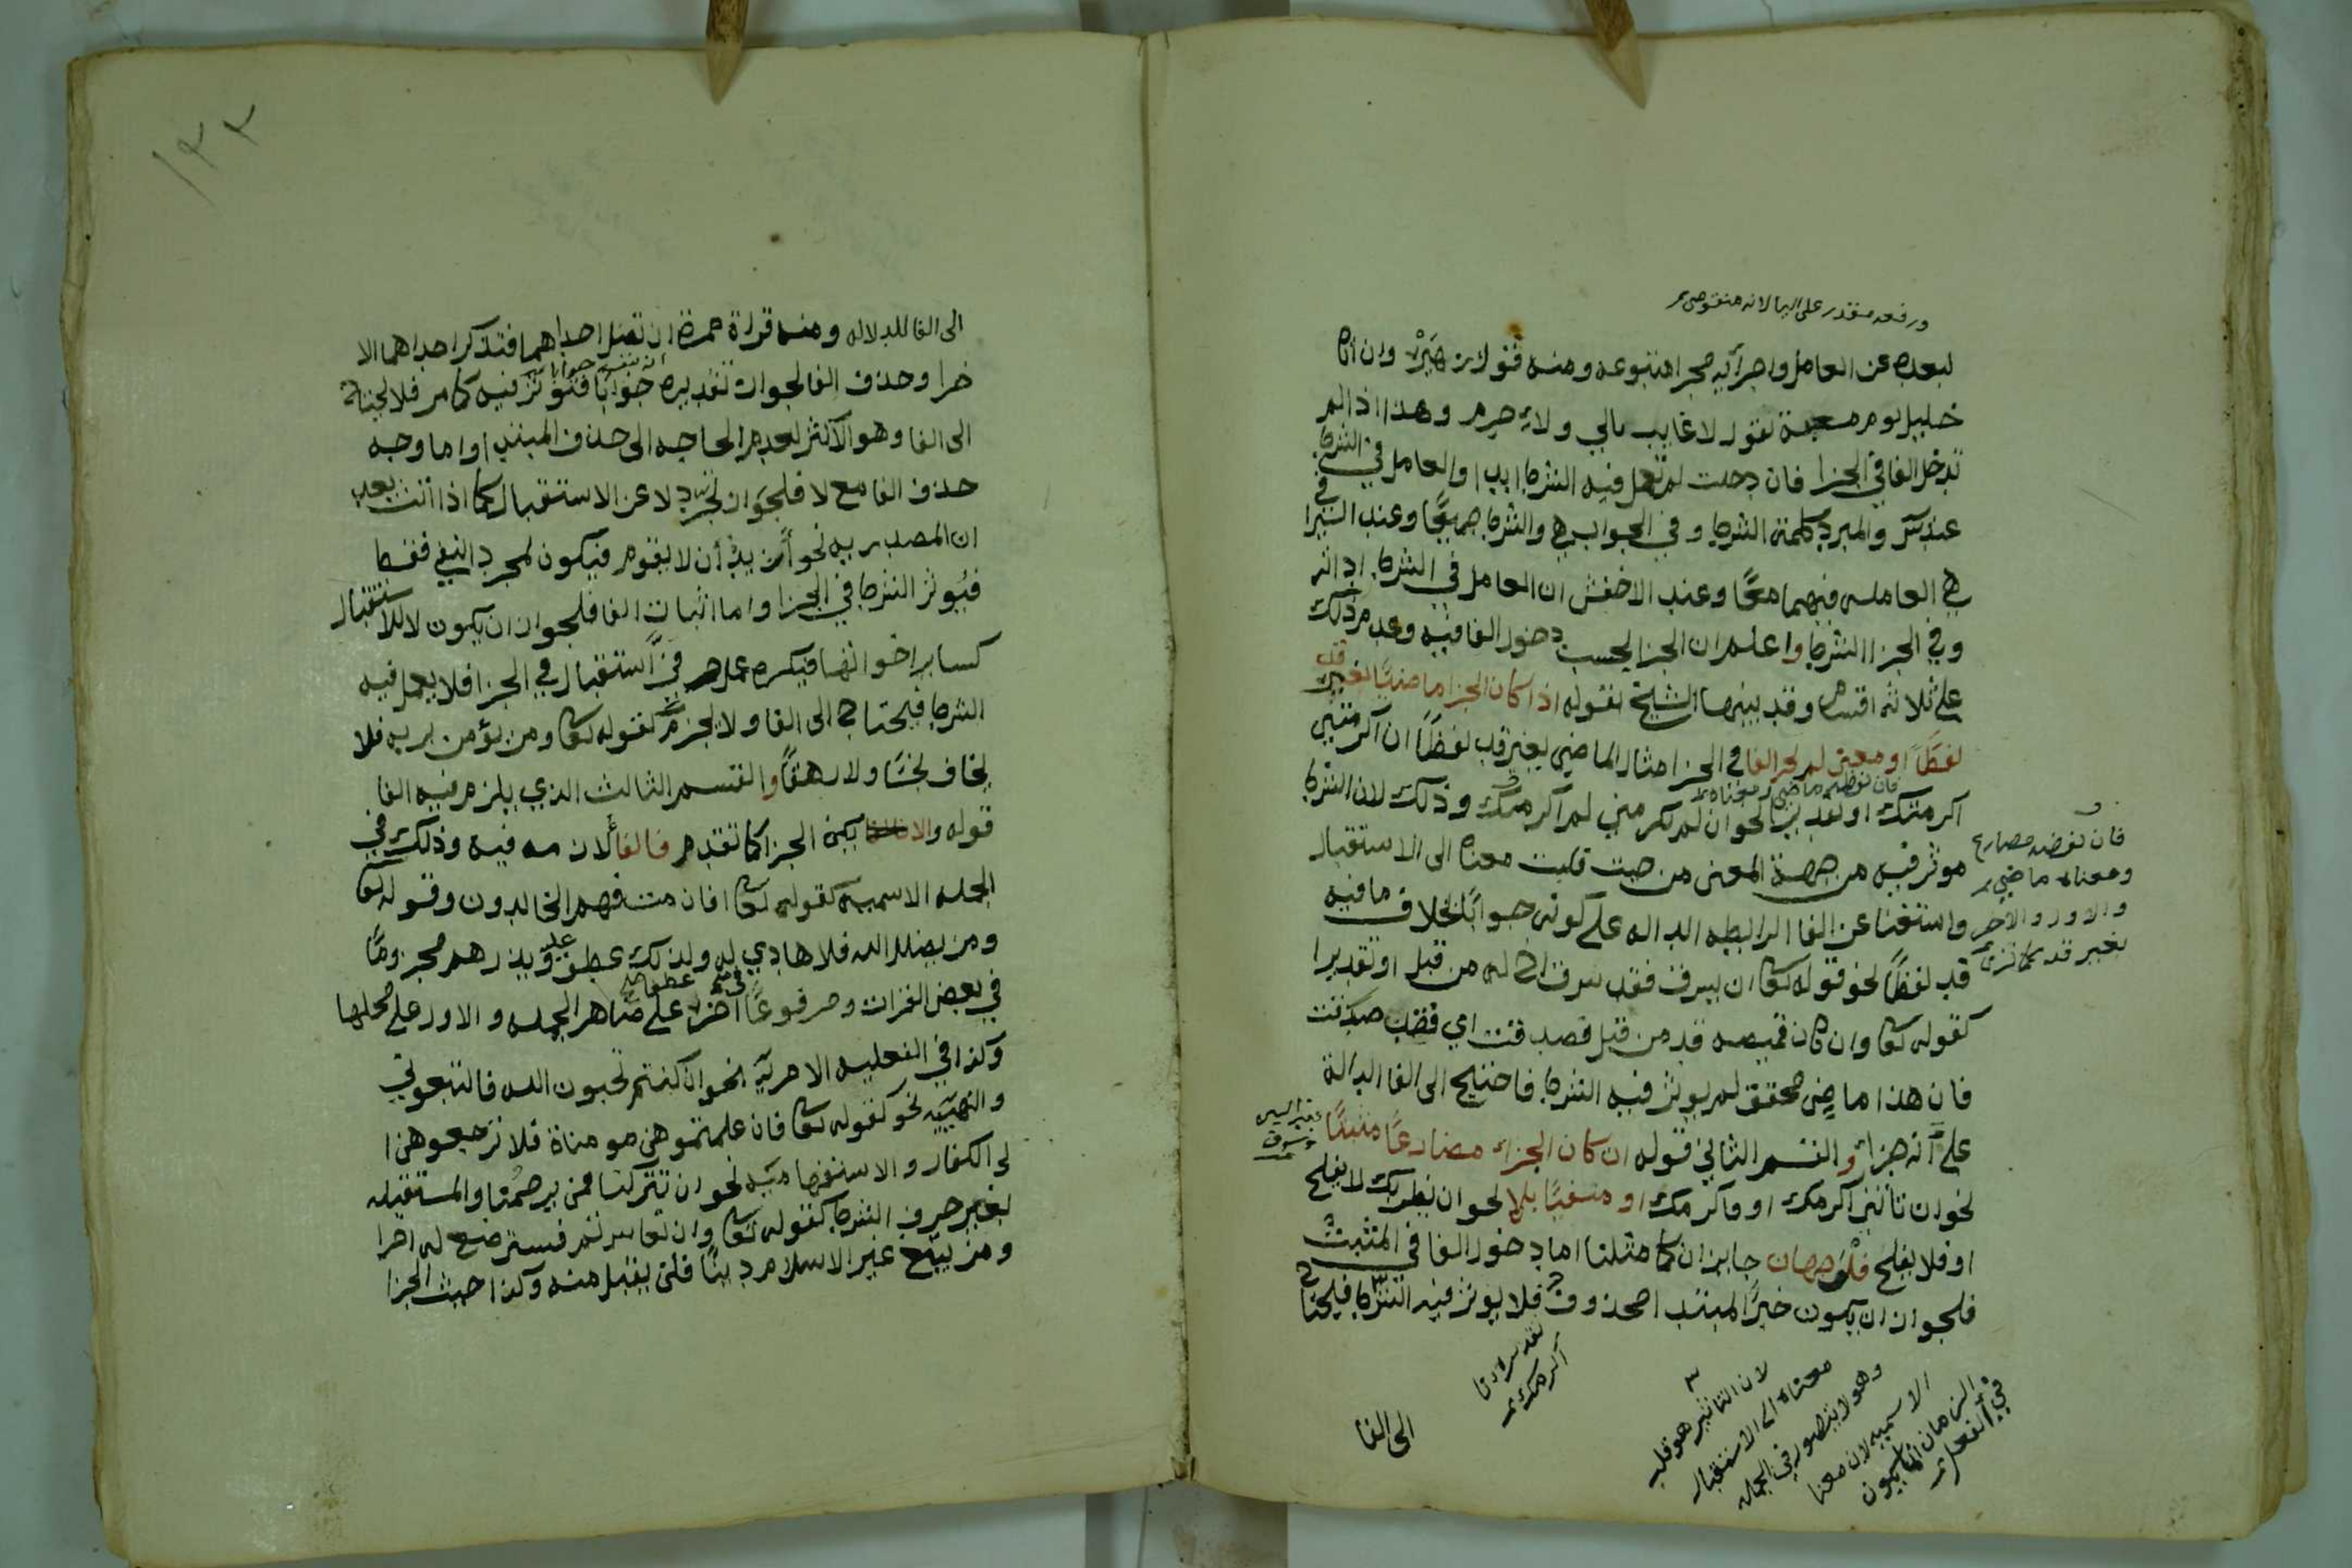 ورفعه مقدر على اليا لانه منقوص
لبعده عن العامل واجرآيه مجرا متبوعه ومنه قول زهير وان اتاه
خليل يوم مسغبة يقول لا غايب مالي ولا حرم وهذا اذا لم
تدخل الفا في الجزا فان دخلت لم تعمل فيه الشرط ابدا والعامل في الشرط
عند س والمبرد كلمة الشرط وفي الجواب هي والشرط جميعًا وعند السيرافي
هي العامله فيهما معًا وعند الاخفش ان العامل في الشرط اداته
وفي الجزا الشرط واعلم ان الجزا بحسب دخول الفا فيه وعدم ذلك
على ثلاثه اقسام وقد بينها الشيخ بقوله اذا كان الجزا ماضيًا بغير قد
لفظًا او معنى لم يجز الفا في الجزا مثال الماضي بغير قد لفظًا ان اكرمتني
اكرمتك او تقديرا نحو ان لم تكرمني لم اكرمك وذلك لان الشرط
فان لفظه ماضي ومعناه
موثر فيه من جهة المعنى من حيث قلبت معناه الى الاستقبال
واستغنا عن الفا الرابطه الداله على كونه جوابًا بخلاف ما فيه
قد لفظًا نحو قوله تعا ان يسرق فقد سرق اخ له من قبل او تقديرا
كقوله تعا وان كان قميصه قد من قبل فصدقت اي فقد صدقت
فان هذا ماضي محقق لم يوثر فيه الشرط فاحتيج الى الفا الدالة
على انه جزا والقسم الثاني قوله ان كان الجزاء مضارعًا مثبتًا
نحو ان تاتني اكرمك او فاكرمك او منفيًا بلا نحو ان يضربك لا يفلح
او فلا يفلح فلوجهان جايزان كما مثلنا اما دخول الفا في المثبت
فلجواز ان يكون خبرًا لمبتدا محذوف فلا يوثر فيه الشرط فيحتاج
فان لفضه مضارع
ومعناه ماضي
والاول والاخر
بغير قد كما ترى
بغير السين
وسوف
اكرمك
لان التاثير هو قلب
معناه الى الاستقبال
وهو لا يتصور في الجمله
الاسميه لان معنا
الزمان انما يكون
في الفعل
الى الفا
١٢٢
الى الفا للدلاله ومنه قراة حمزة ان تضل احداهما فتذكر احداهما الا
خرا وحذف الفا لجواز تقديره جوابًا فتوثر فيه كما مر فلا يحتاج
الى الفا وهو الاكثر لعدم الحاجه الى حذف المبتدا واما وجه
حذف الفا مع لا فلجواز تجرد لا عن الاستقبال كما اذا اتت بعد
ان المصدريه نحو اريد ان لا يقوم فيكون لمجرد النفي فقط
فيوثر الشرط في الجزا واما اثبات الفا فلجواز ان يكون لا للاستقبال
كساير اخواتها فيكره استقبال في الجزا فلا يعمل فيه
الشرط فيحتاج الى الفا ولا يجزم كقوله تعا ومن يؤمن بربه فلا
يخاف بخسًا ولا رهقًا والقسم الثالث الذي يلزم فيه الفا
قوله والا يكن الجزا كما تقدم فالفا لازمه فيه وذلك في
الجمله الاسميه كقوله تعا افان مت فهم الخالدون وقوله تعا
ومن يضلل الله فلا هادي له ولذلك عطف عليه ويذرهم مجزومًا
في بعض القرات ومرفوعًا في اخرا على ضاهر الجمله والاول على محلها
وكذا في الفعليه الامريه نحو ان كنتم تحبون الله فاتبعوني
والنهييه نحو كقوله تعا فان علمتموهن مومناة فلا ترجعوهن ا
لى الكفار والاستفهاميه نحو ان تتركنا فمن يرحمنا والمستقبله
بغير حرف الشرط كقوله تعا وان تعاسرتم فسترضع له اخرا
ومن يبتغ غير الاسلام دينًا فلن يقبل منه وكذا حيث الجزا